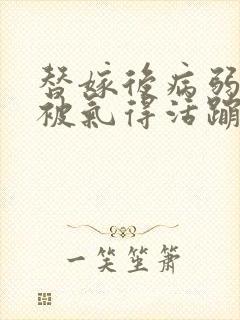 替嫁後病弱
被氣得活蹦
一笑笙簫